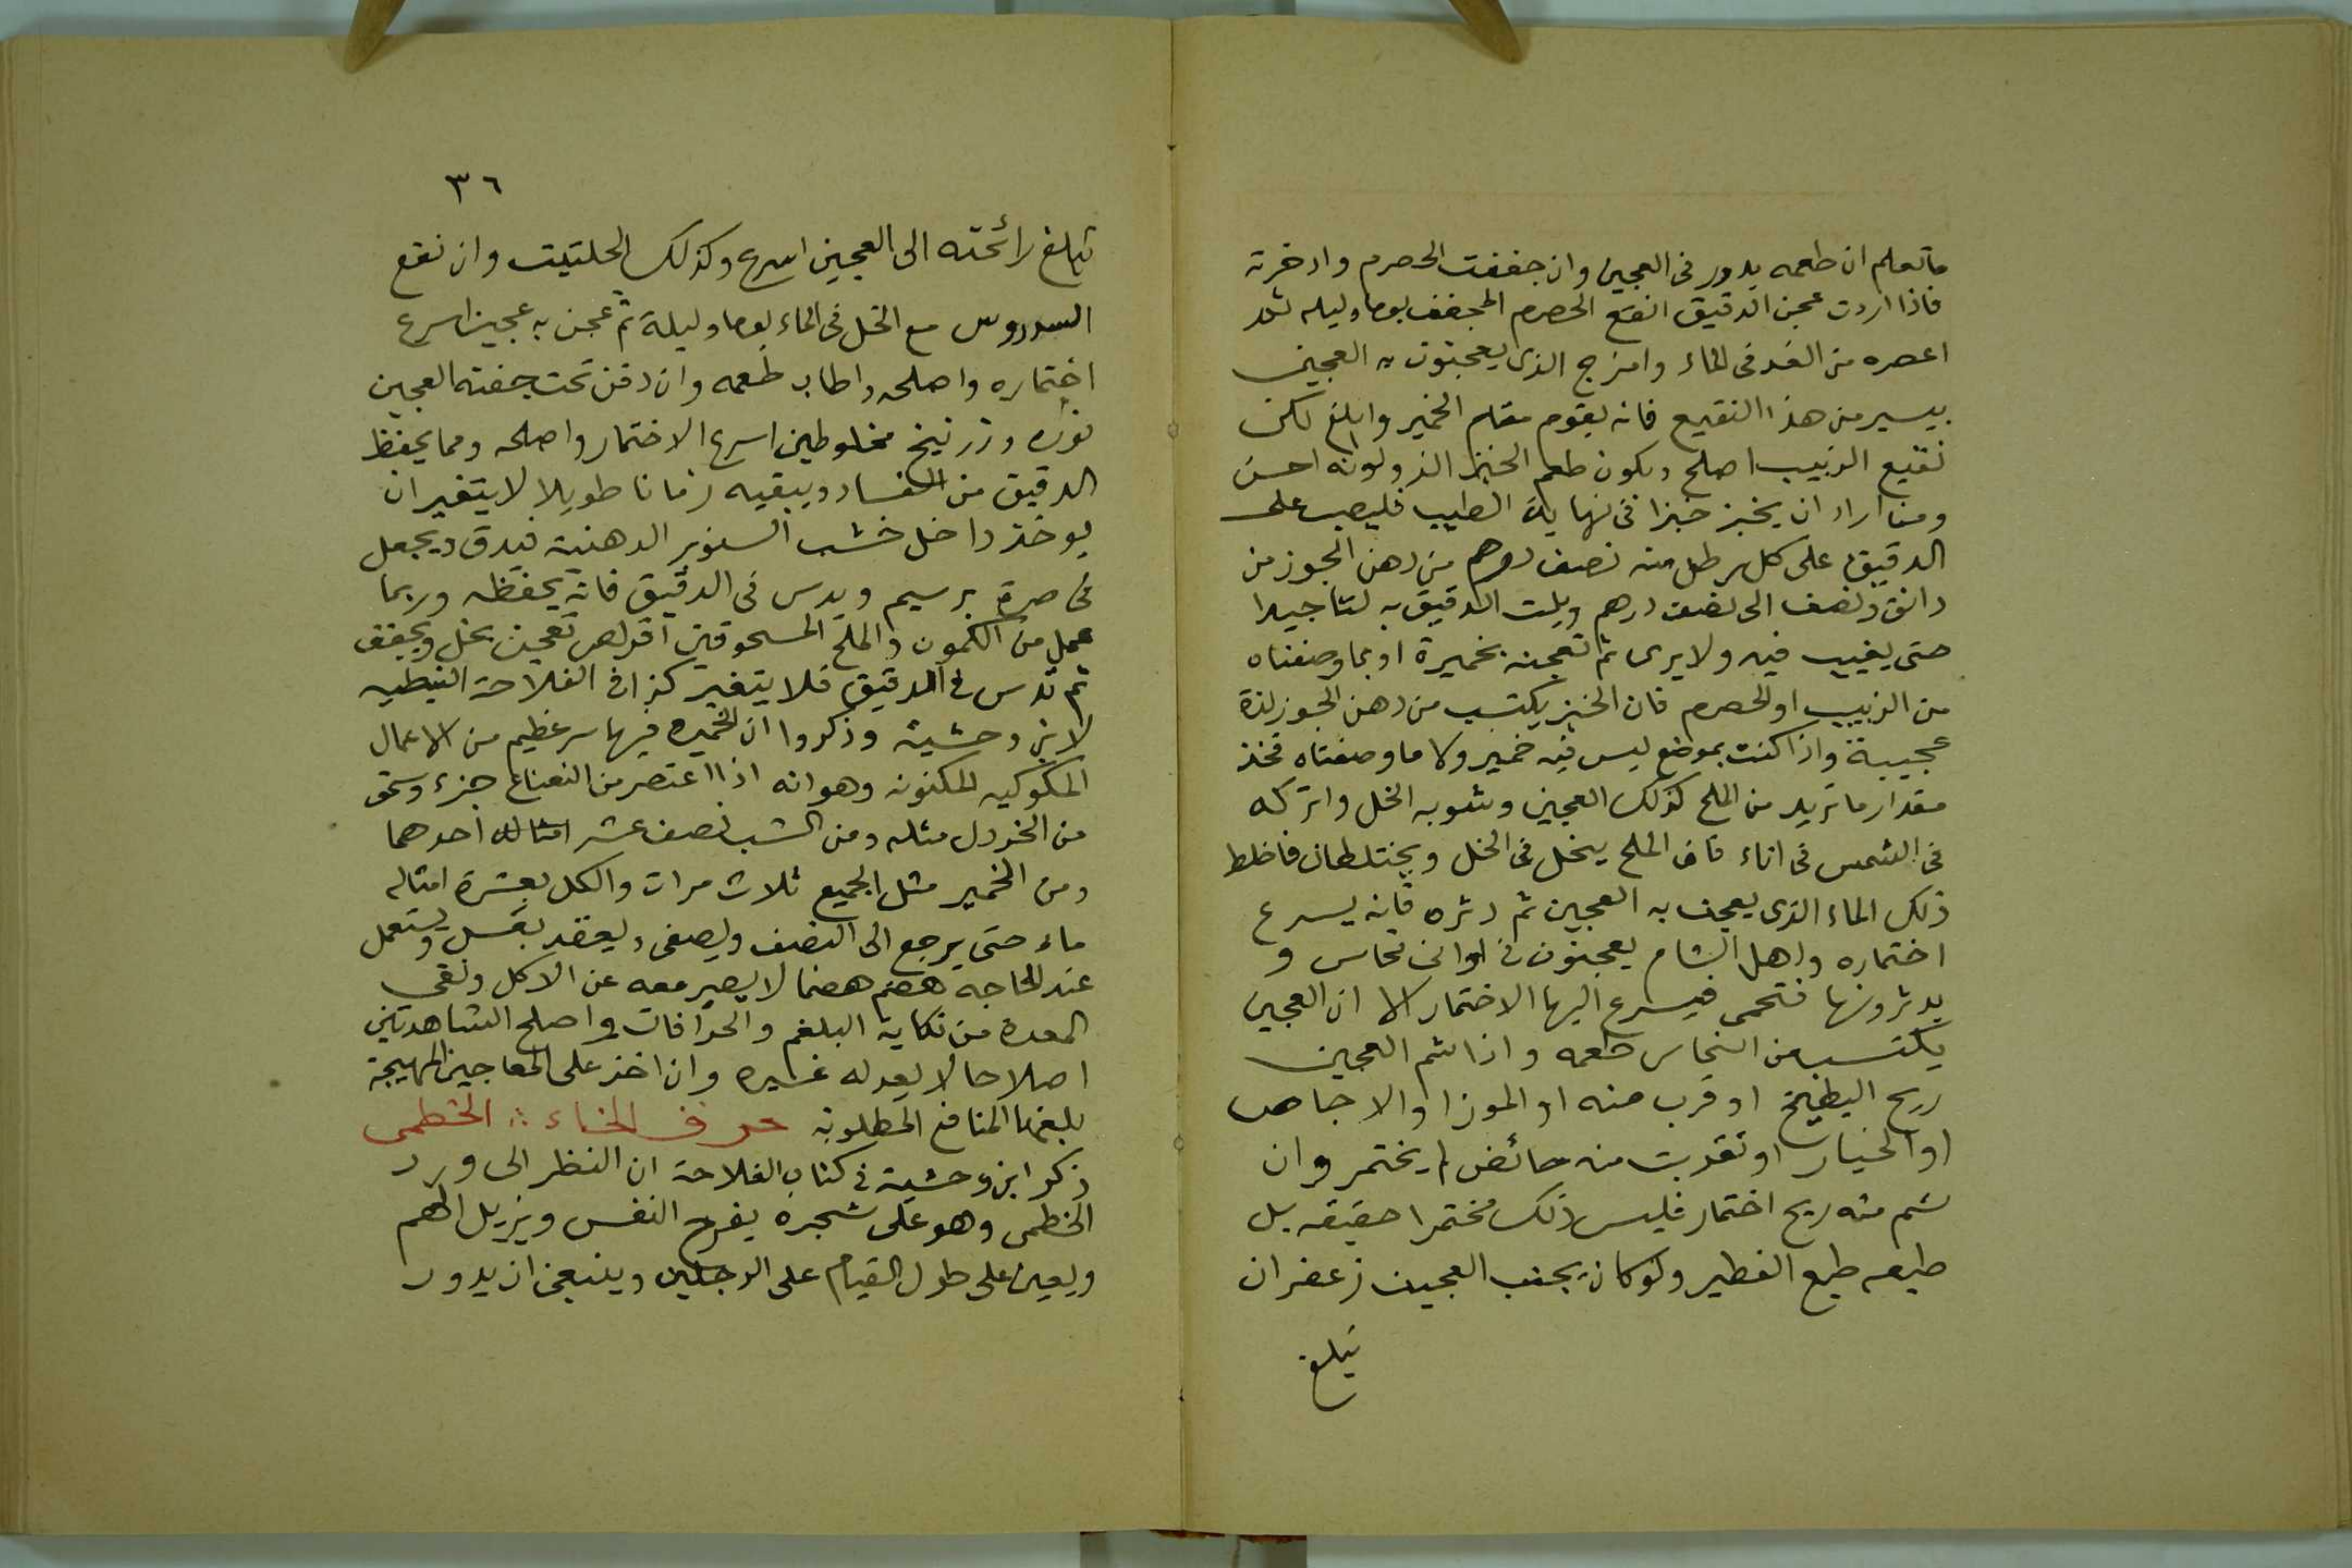 ما تعلم ان طعمه يدور في العجين وان جففت الحصرم وادخرته
فاذا اردت عجن الدقيق انقع الحصرم المجفف يوما وليله ثم
اعصره من الغد في الماء وامزج الذي يعجنون به العجين
بيسير من هذا النقيع فانه يقوم مقام الخمير وابلغ لكن
نقيع الزبيب اصلح ويكون طعم الخبز الذ ولونه احسن
ومن اراد ان يخبز خبزا في نهاية الطيب فليصب على
الدقيق على كل رطل منه نصف درهم من دهن الجوز من
دانق ونصف الى نصف درهم ويلت الدقيق به لتا جيدا
حتى يغيب فيه ولا يرى ثم تعجنه بخميرة او بما وصفناه
من الزبيب او الحصرم فان الخبز يكتسب من دهن الجوز لذة
عجيبة واذا كنت بموضع ليس فيه خمير ولا ما وصفناه فخذ
مقدار ما تريد من الملح كذلك العجين وشوبه الخل واتركه
في الشمس في اناء فان الملح ينحل في الخل ويختلطان فاخلط
ذلك الماء الذي يعجن به العجين ثم دثره فانه يسرع
اختماره واهل الشام يعجنون في اواني نحاس و
يدثرونها فتحمى فيسرع اليها الاختمار الا ان العجين
يكتسب من النحاس طعمه واذا شم العجين
ريح البطيخ او قرب منه او الموز او الاجاص
او الخيار او تقربت منه حائض لم يختمر وان
شم منه ريح اختمار فليس ذلك مختمرا حقيقه بل
طبعه طبع الفطير ولو كان بجنب العجين زعفران
تبلغ
٣٦
تبلغ رائحته الى العجين اسرع وكذلك الحلتيت وان نقع
مع الخل في الماء يوما وليلة ثم عجن به عجين اسرع
اختماره واصلحه واطاب طعمه وان دفن تحت جفنه العجين
نوره وزرنيخ مخلوطين اسرع الاختمار واصلحه ومما يحفظ
الدقيق من الفساد ويبقيه زمانا طويلا لا يتغير ان
يوخذ داخل خشب الصنوبر الدهنية فيدق ويجعل
في صرة برسيم ويدس في الدقيق فانه يحفظه وربما
عمل من الكمون والملح المسحوقين اقراص تعجن بخل وتجفف
ثم تدس في الدقيق فلا يتغير كذا في الفلاحة النبطيه
لابن وحشية وذكروا ان الخميره فيها سر عظيم من الاعمال
المكتونه وهو انه اذا اعتصر من النعناع جزء وسحق
من الخردل مثله ومن الشب نصف عشر امثاله احدهما
ومن الخمير مثل الجميع ثلاث مرات والكل بعشرة امثاله
ماء حتى يرجع الى النصف ويصفى ويعقد بعسل ويستعمل
عند الحاجه هضم هضما لا يصير معه عن الاكل ونقى
المعدة من نكاية البلغم والحرافات واصلح الشاهدتين
اصلاحا لا يعدله غيره وان اخذ على المعاجين المهيجة
بلغها المنافع المطلوبة حرف الخاء ∴ الخطمى
ذكر ابن وحشية في كتاب الفلاحة ان النظر الى ورد
الخطمى وهو على شجره يفرح النفس ويزيل الهم
ويعين على طول القيام على الرجلين وينبغى ان يدور